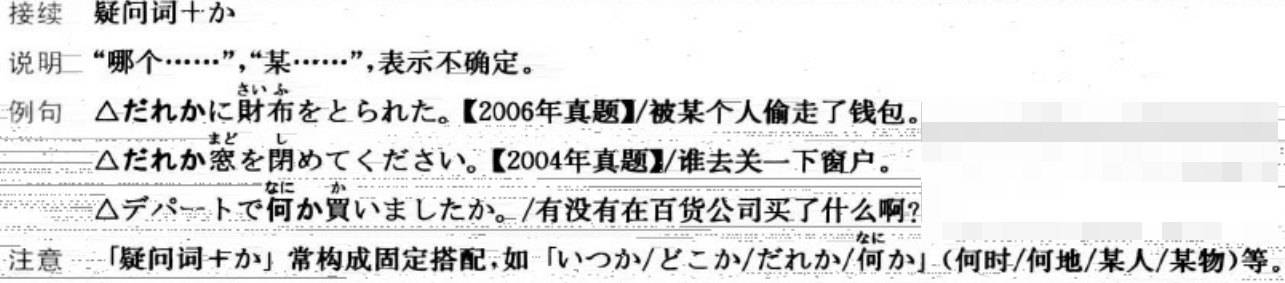 接续 疑问词＋か
说明 “哪个……”,“某……”,表示不确定。
さいふ
例句 △だれかに財布をとられた。【2006年真题】/被某个人偷走了钱包。
まど し
△だれか窓を閉めてください。【2004年真题】/谁去关一下窗户。
なに か
△デパートで何か買いましたか。/有没有在百货公司买了什么啊?
なに
注意 「疑问词＋か」常构成固定搭配,如「いつか/どこか/だれか/何か」(何时/何地/某人/某物)等。